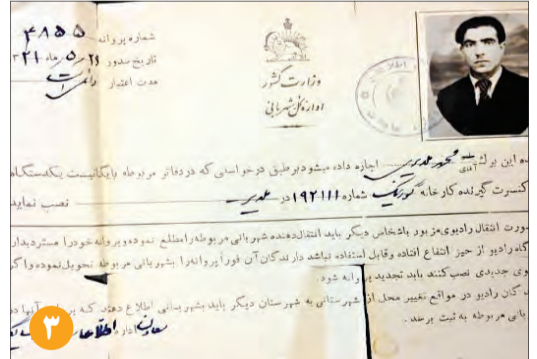 شماره پروانه ۴۸۵۵
تاریخ صدور ۲۶ ر ۵ ماه ۲۱
مدت اعتبار دائمی است
وزارت کشور
اداره کل شهربانی
این برگ آقای محمد اجازه داده میشود بر طبق درخواستی که در دفاتر مربوطه بایگانیست یکدستگاه
کنسرت گیرنده کارخانه شماره ۱۹۲۱۱۱ در نصب نماید
صورت انتقال رادیوی مزبور باشخاص دیگر باید انتقال دهنده شهربانی مربوطه را مطلع نموده و پروانه خود را مسترد دارد
گاه رادیو از حیز انتفاع افتاده و قابل استفاده نباشد دارندگان آن فوراً پروانه را بشهربانی مربوطه تحویل نموده و اگر
وی جدیدی نصب کنند باید تجدید پروانه شود.
گان رادیو در مواقع تغییر محل از شهرستانی به شهرستان دیگر باید بشهربانی اطلاع دهند که آنها در
بانی مربوطه به ثبت برسد.
اداره اطلاعات
۳